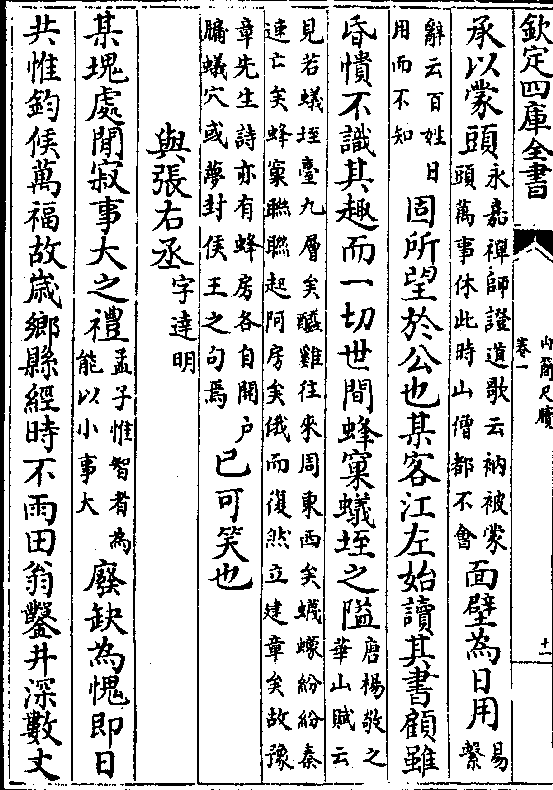 欽定四庫全書
內簡尺牘
卷一
十一
承以蒙頭
永嘉禪師證道歌云衲被蒙
頭萬事休此時山僧都不會
面壁為日用
易
繫
辭云百姓日
用而不知
固所望於公也某客江左始讀其書顧雖
昏憒不識其趣而一切世間蜂窠蟻垤之隘
唐楊敬之
華山賦云
見若蟻垤臺九層矣醯雞往來周東西矣蠛蠓紛紛秦
速亡矣蜂窠聯聯起阿房矣俄而復然立建章矣故豫
章先生詩亦有蜂房各自開户
牖蟻穴或夢封侯王之句焉
已可笑也
與張右丞
字達明
某塊處閴寂事大之禮
孟子惟智者為
能以小事大
廢缺為愧即日
共惟鈞候萬福故歲鄉縣經時不雨田翁鑿井深數丈